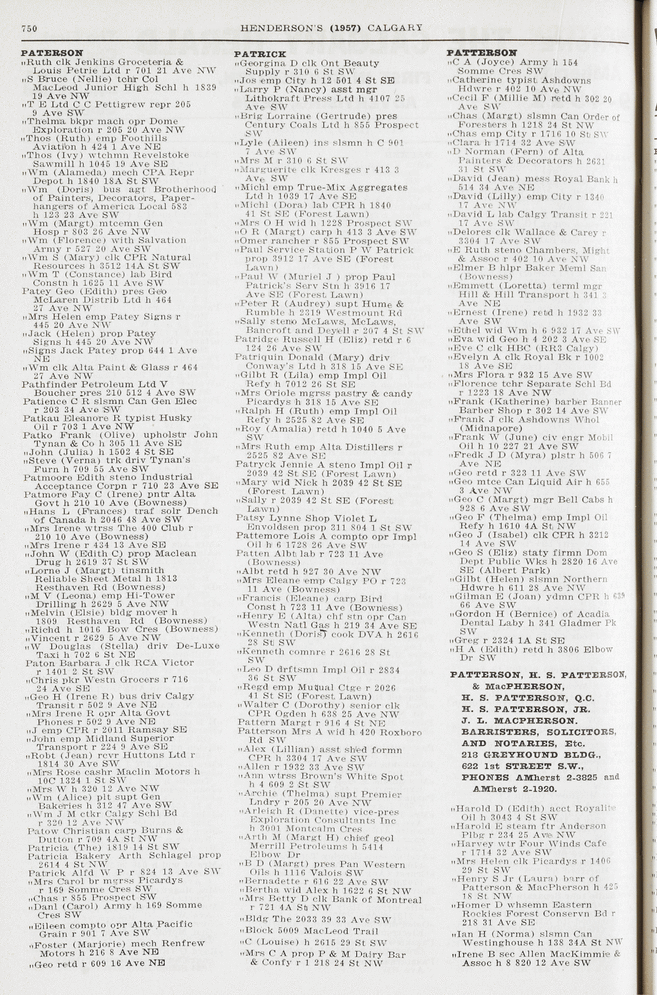 750
HENDERSON'S (1957) CALGARY
PATERSON
„Ruth clk Jenkins Groceteria &
Louis Petrie Ltd r 701 21 Ave NW
„S Bruce (Nellie) tchr Col
MacLeod Junior High Schl h 1839
19 Ave NW
„T E Ltd C C Pettigrew repr 205
9 Ave SW
„Thelma bkpr mach opr Dome
Exploration r 205 20 Ave NW
„Thos (Ruth) emp Foothills
Aviation h 424 1 Ave NE
„Thos (Ivy) wtchmn Revelstoke
Sawmill h 1045 19 Ave SE
„Wm (Alameda) mech CPA Repr
Depot h 1840 18A St SW
„Wm (Doris) bus agt Brotherhood
of Painters, Decorators, Paper-
hangers of America Local 583
h 123 23 Ave SW
„Wm (Margt) mtcemn Gen
Hosp r 803 26 Ave NW
„Wm (Florence) with Salvation
Army r 527 20 Ave SW
„Wm S (Mary) clk CPR Natural
Resources h 3512 14A St SW
„Wm T (Constance) lab Bird
Constn h 1625 11 Ave SW
Patey Geo (Edith) pres Geo
McLaren Distrib Ltd h 464
27 Ave NW
„Mrs Helen emp Patey Signs r
445 20 Ave NW
„Jack (Helen) prop Patey
Signs h 445 20 Ave NW
„Signs Jack Patey prop 644 1 Ave
NE
„Wm clk Alta Paint & Glass r 464
27 Ave NW
Pathfinder Petroleum Ltd V
Boucher pres 210 512 4 Ave SW
Patience C R slsmn Can Gen Elec
r 203 34 Ave SW
Patkau Eleanore R typist Husky
Oil r 703 1 Ave NW
Patko Frank (Olive) upholstr John
Tynan & Co h 305 11 Ave SE
„John (Julia) h 1502 4 St SE
„Steve (Verna) trk driv Tynan's
Furn h 709 55 Ave SW
Patmoore Edith steno Industrial
Acceptance Corpn r 710 23 Ave SE
Patmore Fay C (Irene) pntr Alta
Govt h 210 10 Ave (Bowness)
„Hans L (Frances) traf solr Dench
of Canada h 2046 48 Ave SW
„Mrs Irene wtrss The 400 Club r
210 10 Ave (Bowness)
„Mrs Irene r 434 13 Ave SE
„John W (Edith C) prop Maclean
Drug h 2619 37 St SW
„Lorne J (Margt) tinsmith
Reliable Sheet Metal h 1813
Resthaven Rd (Bowness)
„M V (Leona) emp Hi-Tower
Drilling h 2629 5 Ave NW
„Melvin (Elsie) bldg mover h
1809 Resthaven Rd (Bowness)
„Richd h 1016 Bow Cres (Bowness)
„Vincent r 2629 5 Ave NW
„W Douglas (Stella) driv De-Luxe
Taxi h 702 6 St NE
Paton Barbara J clk RCA Victor
r 1401 2 St NW
„Chris pkr Westn Grocers r 716
24 Ave SE
„Geo H (Irene R) bus driv Calgy
Transit r 502 9 Ave NE
„Mrs Irene R opr Alta Govt
Phones r 502 9 Ave NE
„J emp CPR r 2011 Ramsay SE
„John emp Midland Superior
Transport r 224 9 Ave SE
„Robt (Jean) rcvr Huttons Ltd r
1814 30 Ave SW
„Mrs Rose cashr Maclin Motors h
10C 1324 1 St SW
„Mrs W h 320 12 Ave NW
„Wm (Alice) plt supt Gen
Bakeries h 312 47 Ave SW
„Wm J M ctkr Calgy Schl Bd
r 320 12 Ave NW
Patow Christian carp Burns &
Dutton r 709 4A St NW
Patricia (The) 1819 14 St SW
Patricia Bakery Arth Schlagel prop
2614 4 St NW
Patrick Alfd W P r 824 13 Ave SW
„Mrs Carol br mgrss Picardys
r 169 Somme Cres SW
„Chas r 855 Prospect SW
„Danl (Carol) Army h 169 Somme
Cres SW
„Eileen compto opr Alta Pacific
Grain r 901 7 Ave SW
„Foster (Marjorie) mech Renfrew
Motors h 216 8 Ave NE
„Geo retd r 609 16 Ave NE
PATRICK
„Georgina D clk Ont Beauty
Supply r 310 6 St SW
„Jos emp City h 12 501 4 St SE
„Larry P (Nancy) asst mgr
Lithokraft Press Ltd h 4107 25
Ave SW
„Brig Lorraine (Gertrude) pres
Century Coals Ltd h 855 Prospect
SW
„Lyle (Aileen) ins slsmn h C 901
7 Ave SW
„Mrs M r 310 6 St SW
„Marguerite clk Kresges r 413 3
Ave SW
„Michl emp True-Mix Aggregates
Ltd h 1039 17 Ave SE
„Michl (Dora) lab CPR h 1840
41 St SE (Forest Lawn)
„Mrs O H wid h 1228 Prospect SW
„O R (Margt) carp h 413 3 Ave SW
„Omer rancher r 855 Prospect SW
„Paul Service Station P W Patrick
prop 3912 17 Ave SE (Forest
Lawn)
„Paul W (Muriel J) prop Paul
Patrick's Serv Stn h 3916 17
Ave SE (Forest Lawn)
„Peter R (Audrey) supt Hume &
Rumble h 2319 Westmount Rd
„Sally steno McLaws, McLaws,
Bancroft and Deyell r 207 4 St SW
Patridge Russell H (Eliz) retd r 6
124 26 Ave SW
Patriquin Donald (Mary) driv
Conway's Ltd h 318 15 Ave SE
„Gilbt R (Lila) emp Impl Oil
Refy h 7012 26 St SE
„Mrs Oriole mgrss pastry & candy
Picardys h 318 15 Ave SE
„Ralph H (Ruth) emp Impl Oil
Refy h 2525 82 Ave SE
„Roy (Amalia) retd h 1040 5 Ave
SW
„Mrs Ruth emp Alta Distillers r
2525 82 Ave SE
Patryck Jennie A steno Impl Oil r
2039 42 St SE (Forest Lawn)
„Mary wid Nick h 2039 42 St SE
(Forest Lawn)
„Sally r 2039 42 St SE (Forest
Lawn)
Patsy Lynne Shop Violet L
Envoldsen prop 311 804 1 St SW
Pattemore Lois A compto opr Impl
Oil h 6 1728 26 Ave SW
Patten Albt lab r 723 11 Ave
(Bowness)
„Albt retd h 927 30 Ave NW
„Mrs Eleane emp Calgy PO r 723
11 Ave (Bowness)
„Francis (Eleane) carp Bird
Const h 723 11 Ave (Bowness)
„Henry E (Alta) chf stn opr Can
Westn Natl Gas h 219 34 Ave SE
„Kenneth (Doris) cook DVA h 2616
28 St SW
„Kenneth comnre r 2616 28 St
SW
„Leo D drftsmn Impl Oil r 2834
36 St SW
„Regd emp Mutual Ctge r 2026
41 St SE (Forest Lawn)
„Walter C (Dorothy) senior clk
CPR Ogden h 638 25 Ave NW
Pattern Margt r 916 4 St NE
Patterson Mrs A wid h 420 Roxboro
Rd SW
„Alex (Lillian) asst shed formn
CPR h 3304 17 Ave SW
„Allen r 1932 33 Ave SW
„Ann wtrss Brown's White Spot
h 4 609 2 St SW
„Archie (Thelma) supt Premier
Lndry r 205 20 Ave NW
„Arleigh R (Danette) vice-pres
Exploration Consultants Inc
h 3001 Montcalm Cres
„Arth M (Margt H) chief geol
Merrill Petroleums h 5414
Elbow Dr
„B D (Margt) pres Pan Western
Oils h 1116 Valois SW
„Bernadette r 616 22 Ave SW
„Bertha wid Alex h 1622 6 St NW
„Mrs Betty D clk Bank of Montreal
r 721 4A St NW
„Bldg The 2033 39 33 Ave SW
„Block 5009 MacLeod Trail
„C (Louise) h 2615 29 St SW
„Mrs C A prop P & M Dairy Bar
& Confy r 1 218 24 St NW
PATTERSON
„C A (Joyce) Army h 154
Somme Cres SW
„Catherine typist Ashdowns
Hdwre r 402 10 Ave NW
„Cecil F (Millie M) retd h 302 20
Ave SW
„Chas (Margt) slsmn Can Order of
Foresters h 1218 24 St NW
„Chas emp City r 1716 10 St SW
„Clara h 1714 32 Ave SW
„D Norman (Fern) of Alta
Painters & Decorators h 2631
31 St SW
„David (Jean) mess Royal Bank h
514 34 Ave NE
„David (Lilly) emp City r 1340
17 Ave NW
„David L lab Calgy Transit r 221
17 Ave SW
„Delores clk Wallace & Carey r
3304 17 Ave SW
„E Ruth steno Chambers, Might
& Assoc r 402 10 Ave NW
„Elmer B hlpr Baker Meml San
(Bowness)
„Emmett (Loretta) terml mgr
Hill & Hill Transport h 341 3
Ave NE
„Ernest (Irene) retd h 1932 33
Ave SW
„Ethel wid Wm h 6 932 17 Ave SW
„Eva wid Geo h 4 202 3 Ave SE
„Eve C clk HBC (RR3 Calgy)
„Evelyn A clk Royal Bk r 1002
18 Ave SE
„Mrs Flora r 932 15 Ave SW
„Florence tchr Separate Schl Bd
r 1223 18 Ave NW
„Frank (Katherine) barber Banner
Barber Shop r 302 14 Ave SW
„Frank J clk Ashdowns Whol
(Midnapore)
„Frank W (June) civ engr Mobil
Oil h 10 227 21 Ave SW
„Fredk J D (Myra) plstr h 506 7
Ave NE
„Geo retd r 323 11 Ave SW
„Geo mtce Can Liquid Air h 655
3 Ave NW
„Geo C (Margt) mgr Bell Cabs h
928 6 Ave SW
„Geo F (Thelma) emp Impl Oil
Refy h 1610 4A St NW
„Geo J (Isabel) clk CPR h 3212
14 Ave SW
„Geo S (Eliz) staty firmn Dom
Dept Public Wks h 2820 16 Ave
SE (Albert Park)
„Gilbt (Helen) slsmn Northern
Hdwre h 611 28 Ave NW
„Gilman E (Joan) ydmn CPR h 639
66 Ave SW
„Gordon H (Bernice) of Acadia
Dental Laby h 341 Gladmer Pk
SW
„Greg r 2324 1A St SE
„H A (Edith) retd h 3806 Elbow
Dr SW
PATTERSON, H. S. PATTERSON,
& MacPHERSON,
H. S. PATTERSON, Q.C.
H. S. PATTERSON, JR.
J. L. MACPHERSON.
BARRISTERS, SOLICITORS,
AND NOTARIES, Etc.
218 GREYHOUND BLDG.,
622 1st STREET S.W.,
PHONES AMherst 2-3825 and
AMherst 2-1920.
„Harold D (Edith) acct Royalite
Oil h 3043 4 St SW
„Harold E steam ftr Anderson
Plbg r 234 25 Ave NW
„Harvey wtr Four Winds Cafe
r 1714 32 Ave SW
„Mrs Helen clk Picardys r 1406
29 St SW
„Henry S Jr (Laura) barr of
Patterson & MacPherson h 425
18 St NW
„Homer D whsemn Eastern
Rockies Forest Conservn Bd r
218 31 Ave SE
„Ian H (Norma) slsmn Can
Westinghouse h 138 34A St NW
„Irene B sec Allen MacKimmie &
Assoc h 8 820 12 Ave SW